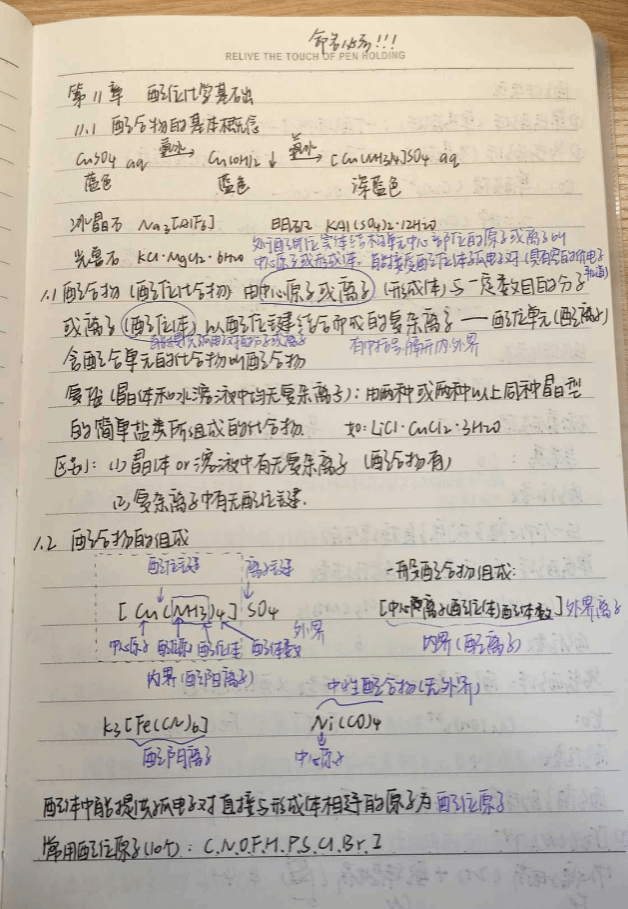 命名必考!!!
RELIVE THE TOUCH OF PEN HOLDING
第11章 配位化学基础
11.1 配合物的基本概念
CuSO4 aq 氨水→ Cu(OH)2↓ 氨水→ [Cu(NH3)4]SO4 aq
蓝色 蓝色 深蓝色
冰晶石 Na3[AlF6] 明矾 KAl(SO4)2·12H2O
光卤石 KCl·MgCl2·6H2O
处于配位实体结构单元中心部位的原子或离子叫
中心原子或形成体. 能接受配位体孤电子对(具有空的价电子轨道)
1.1 配合物 (配位化合物) 由中心原子或离子 (形成体) 与一定数目的分子
或离子 (配位体) 以配位键结合而成的复杂离子 —— 配位单元 (配离子)
能提供孤电子对的分子或离子 有中括号, 隔开内外界
含配合单元的化合物叫配合物
复盐 (晶体和水溶液中均无复杂离子): 由两种或两种以上同种晶型
的简单盐类所组成的化合物. 如: LiCl·CuCl2·3H2O
区别: (1) 晶体 or 溶液中有无复杂离子 (配合物有)
(2) 复杂离子中有无配位键.
1.2 配合物的组成
配位键 离子键 一般配合物组成:
[Cu(NH3)4] SO4 [中心离子(配位体)配体数] 外界离子
中心原子 配位原子 配位体 配体数 外界 内界 (配离子)
内界 (配阳离子) 中性配合物 (无外界)
K3[Fe(CN)6] Ni(CO)4
配阴离子 中心原子
配体中能提供孤电子对直接与形成体相连的原子为配位原子
常用配位原子(10个): C.N.O.F.H.P.S.Cl.Br.I